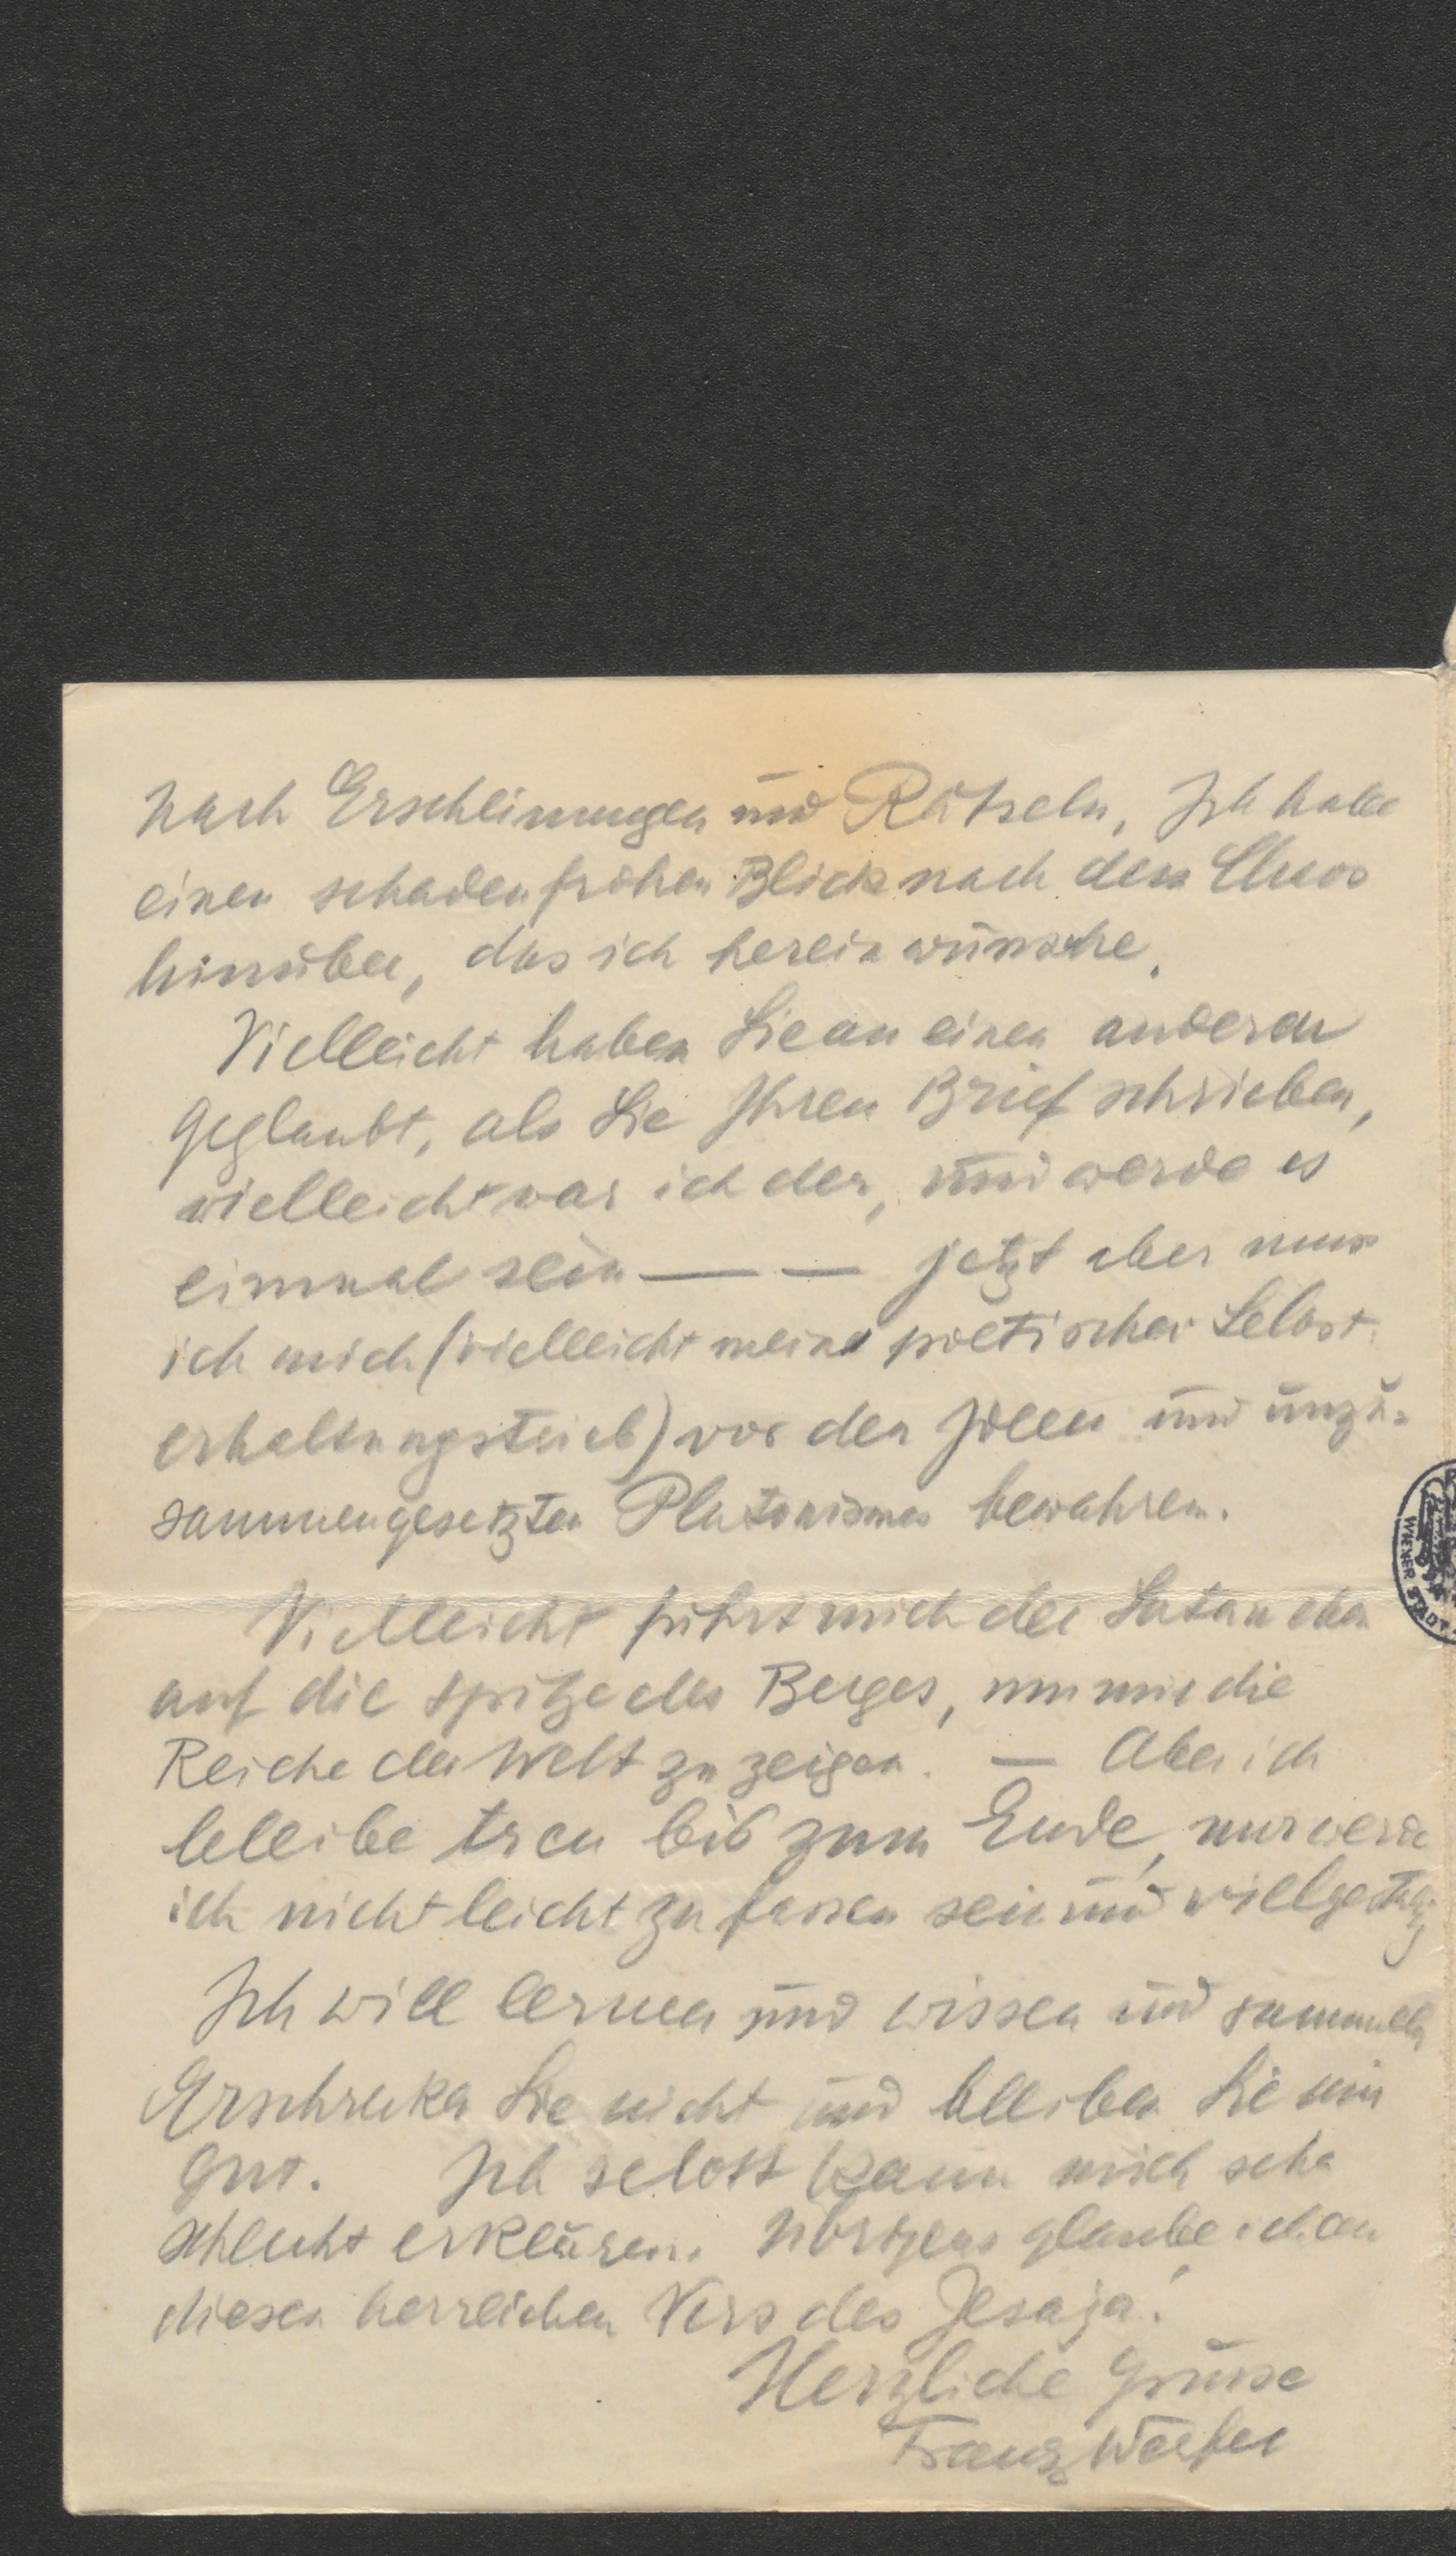 nach Erscheinungen und Rätseln, Ich habe
einen schadenfrohen Blick nach dem Chaos
hinüber, das ich hereinwünsche.
Vielleicht haben Sie an einen anderen
geglaubt, als Sie Ihren Brief schrieben,
vielleicht war ich der, und werde es
einmal sein — — jetzt aber muss
ich mich (vielleicht meine poetischer Selbst-
erhaltungstrieb) vor den Ideen und unzu-
sammengesetzten Platonismus bewahren.
Vielleicht führt mich der Satan eben
auf die Spitze des Berges, um mir die
Reiche der Welt zu zeigen. — Aber ich
bleibe treu bis zum Ende, nur werde
ich nicht leicht zu fassen sein und vielgestaltig
Ich will lernen und wissen und sammeln
Erschrecken Sie nicht und bleiben Sie mir
gut. Ich selbst kann mich sehr
schlecht erklären. Übrigens glaube ich an
diesen herrlichen Vers des Jesaja!
Herzliche Grüsse
Franz Werfel
WIENER STADT